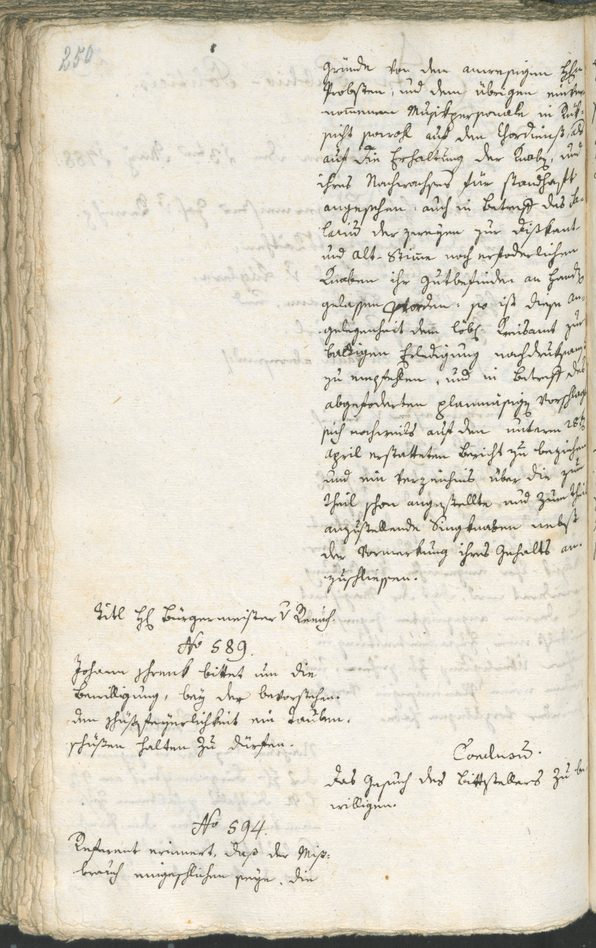 250
Gründe von dem anwesigen Hh.
Probsten, und dem übrigen einver
nommenen Musikpersonale in Rük
sicht sowohl auf den Chordienst, als
auf die Erhaltung der Knab, und
ihres Nachwachses für standhaft
angesehen, auch in Betreff des Sa
larius der zweyen zur Diskant
und Alt-Stimme noch erfoderlichen
Knaben ihr Gutbefinden an Hand
gelassen worden, so ist diese An
gelegenheit dem löbl. Kreisamt zur
baldigen Erledigung nachdruksam
zu empfehlen, und in Betreff des
abgefoderten planmäsigen Vorschlags
sich nochmals auf den unterm 28t
April erstatteten Bericht zu beziehen
und ein Verzeichnis über die zum
Theil schon angestellte, und zum Theil
anzustellende Singknaben nebst
der Vormerkung ihres Gehalts an
zuschliessen.
Titl H Bürgermeister v
No 589.
Johann Schenk bittet um die
Bewilligung, bey der bevorstehen
den Schüsfeyerlichkeit ein Tauben
schüßen halten zu dürfen.
Conclusum.
Das Gesuch des Bittstellers zu be
willigen.
No 594.
Referent erinnert, daß der Miß-
brauch eingeschlichen seye, die